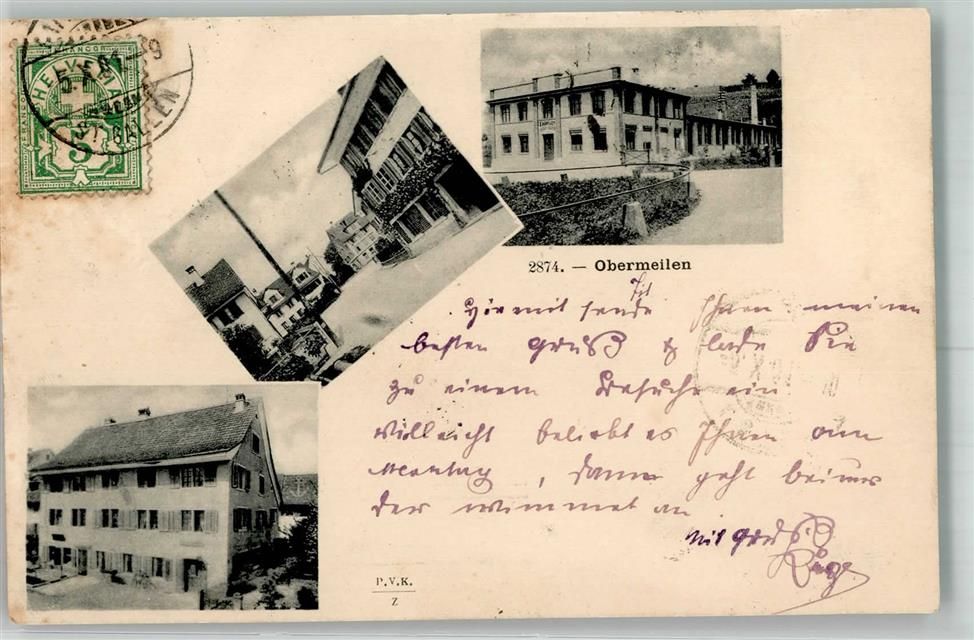 FRANCO HELVETIA FRANCO
5
ST. GALLEN
2874. — Obermeilen
Hiermit sende ich Ihnen meinen
besten Gruß & lade Sie
zu einem Besuche ein
villeicht beliebt es Ihnen am
Montag, dann geht bei uns
der Wimmet an
Mit Gruß
P.V.K.
Z